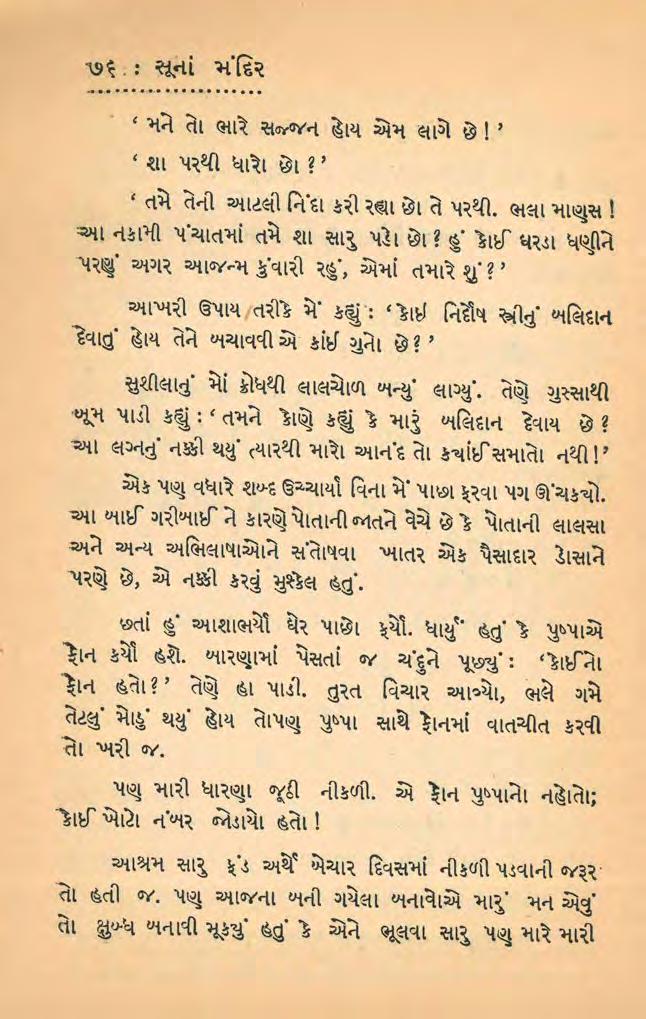 ૭૬ : સૂનાં મંદિર
‘ મને તો ભારે સજ્જન હોય એમ લાગે છે ! ’
‘ શા પરથી ધારો છો ? ’
‘ તમે તેની આટલી નિંદા કરી રહ્યા છો તે પરથી. ભલા માણસ !
આ નકામી પંચાતમાં તમે શા સારુ પડો છો ? હું કોઈ ઘરડા ધણીને
પરણું અગર આજન્મ કુંવારી રહું, એમાં તમારે શું ? ’
આખરી ઉપાય તરીકે મેં કહ્યું : ‘ કોઈ નિર્દોષ સ્ત્રીનું બલિદાન
દેવાતું હોય તેને બચાવવી એ કાંઈ ગુનો છે ? ’
સુશીલાનું મોં ક્રોધથી લાલચોળ બન્યું લાગ્યું. તેણે ગુસ્સાથી
બૂમ પાડી કહ્યું : ‘ તમને કોણે કહ્યું કે મારું બલિદાન દેવાય છે ?
આ લગ્નનું નક્કી થયું ત્યારથી મારો આનંદ તો ક્યાંઈ સમાતો નથી ! ’
એક પણ વધારે શબ્દ ઉચ્ચાર્યા વિના મેં પાછા ફરવા પગ ઊંચક્યો.
આ બાઈ ગરીબાઈ ને કારણે પોતાની જાતને વેચે છે કે પોતાની લાલસા
અને અન્ય અભિલાષાઓને સંતોષવા ખાતર એક પૈસાદાર ડોસાને
પરણે છે, એ નક્કી કરવું મુશ્કેલ હતું.
છતાં હું આશાભર્યો ઘેર પાછો ફર્યો. ધાર્યું હતું કે પુષ્પાએ
ફોન કર્યો હશે. બારણામાં પેસતાં જ ચંદુને પૂછ્યું : ‘કોઈનો
ફોન હતો ? ’ તેણે હા પાડી. તુરત વિચાર આવ્યો, ભલે ગમે
તેટલું મોડું થયું હોય તોપણ પુષ્પા સાથે ફોનમાં વાતચીત કરવી
તો ખરી જ.
પણ મારી ધારણા જૂઠી નીકળી. એ ફોન પુષ્પાનો નહોતો;
કોઈ ખોટો નંબર જોડાયો હતો !
આશ્રમ સારુ ફંડ અર્થે બેચાર દિવસમાં નીકળી પડવાની જરૂર
તો હતી જ. પણ આજના બની ગયેલા બનાવોએ મારું મન એવું
તો ક્ષુબ્ધ બનાવી મૂક્યું હતું કે એને ભૂલવા સારુ પણ મારે મારી